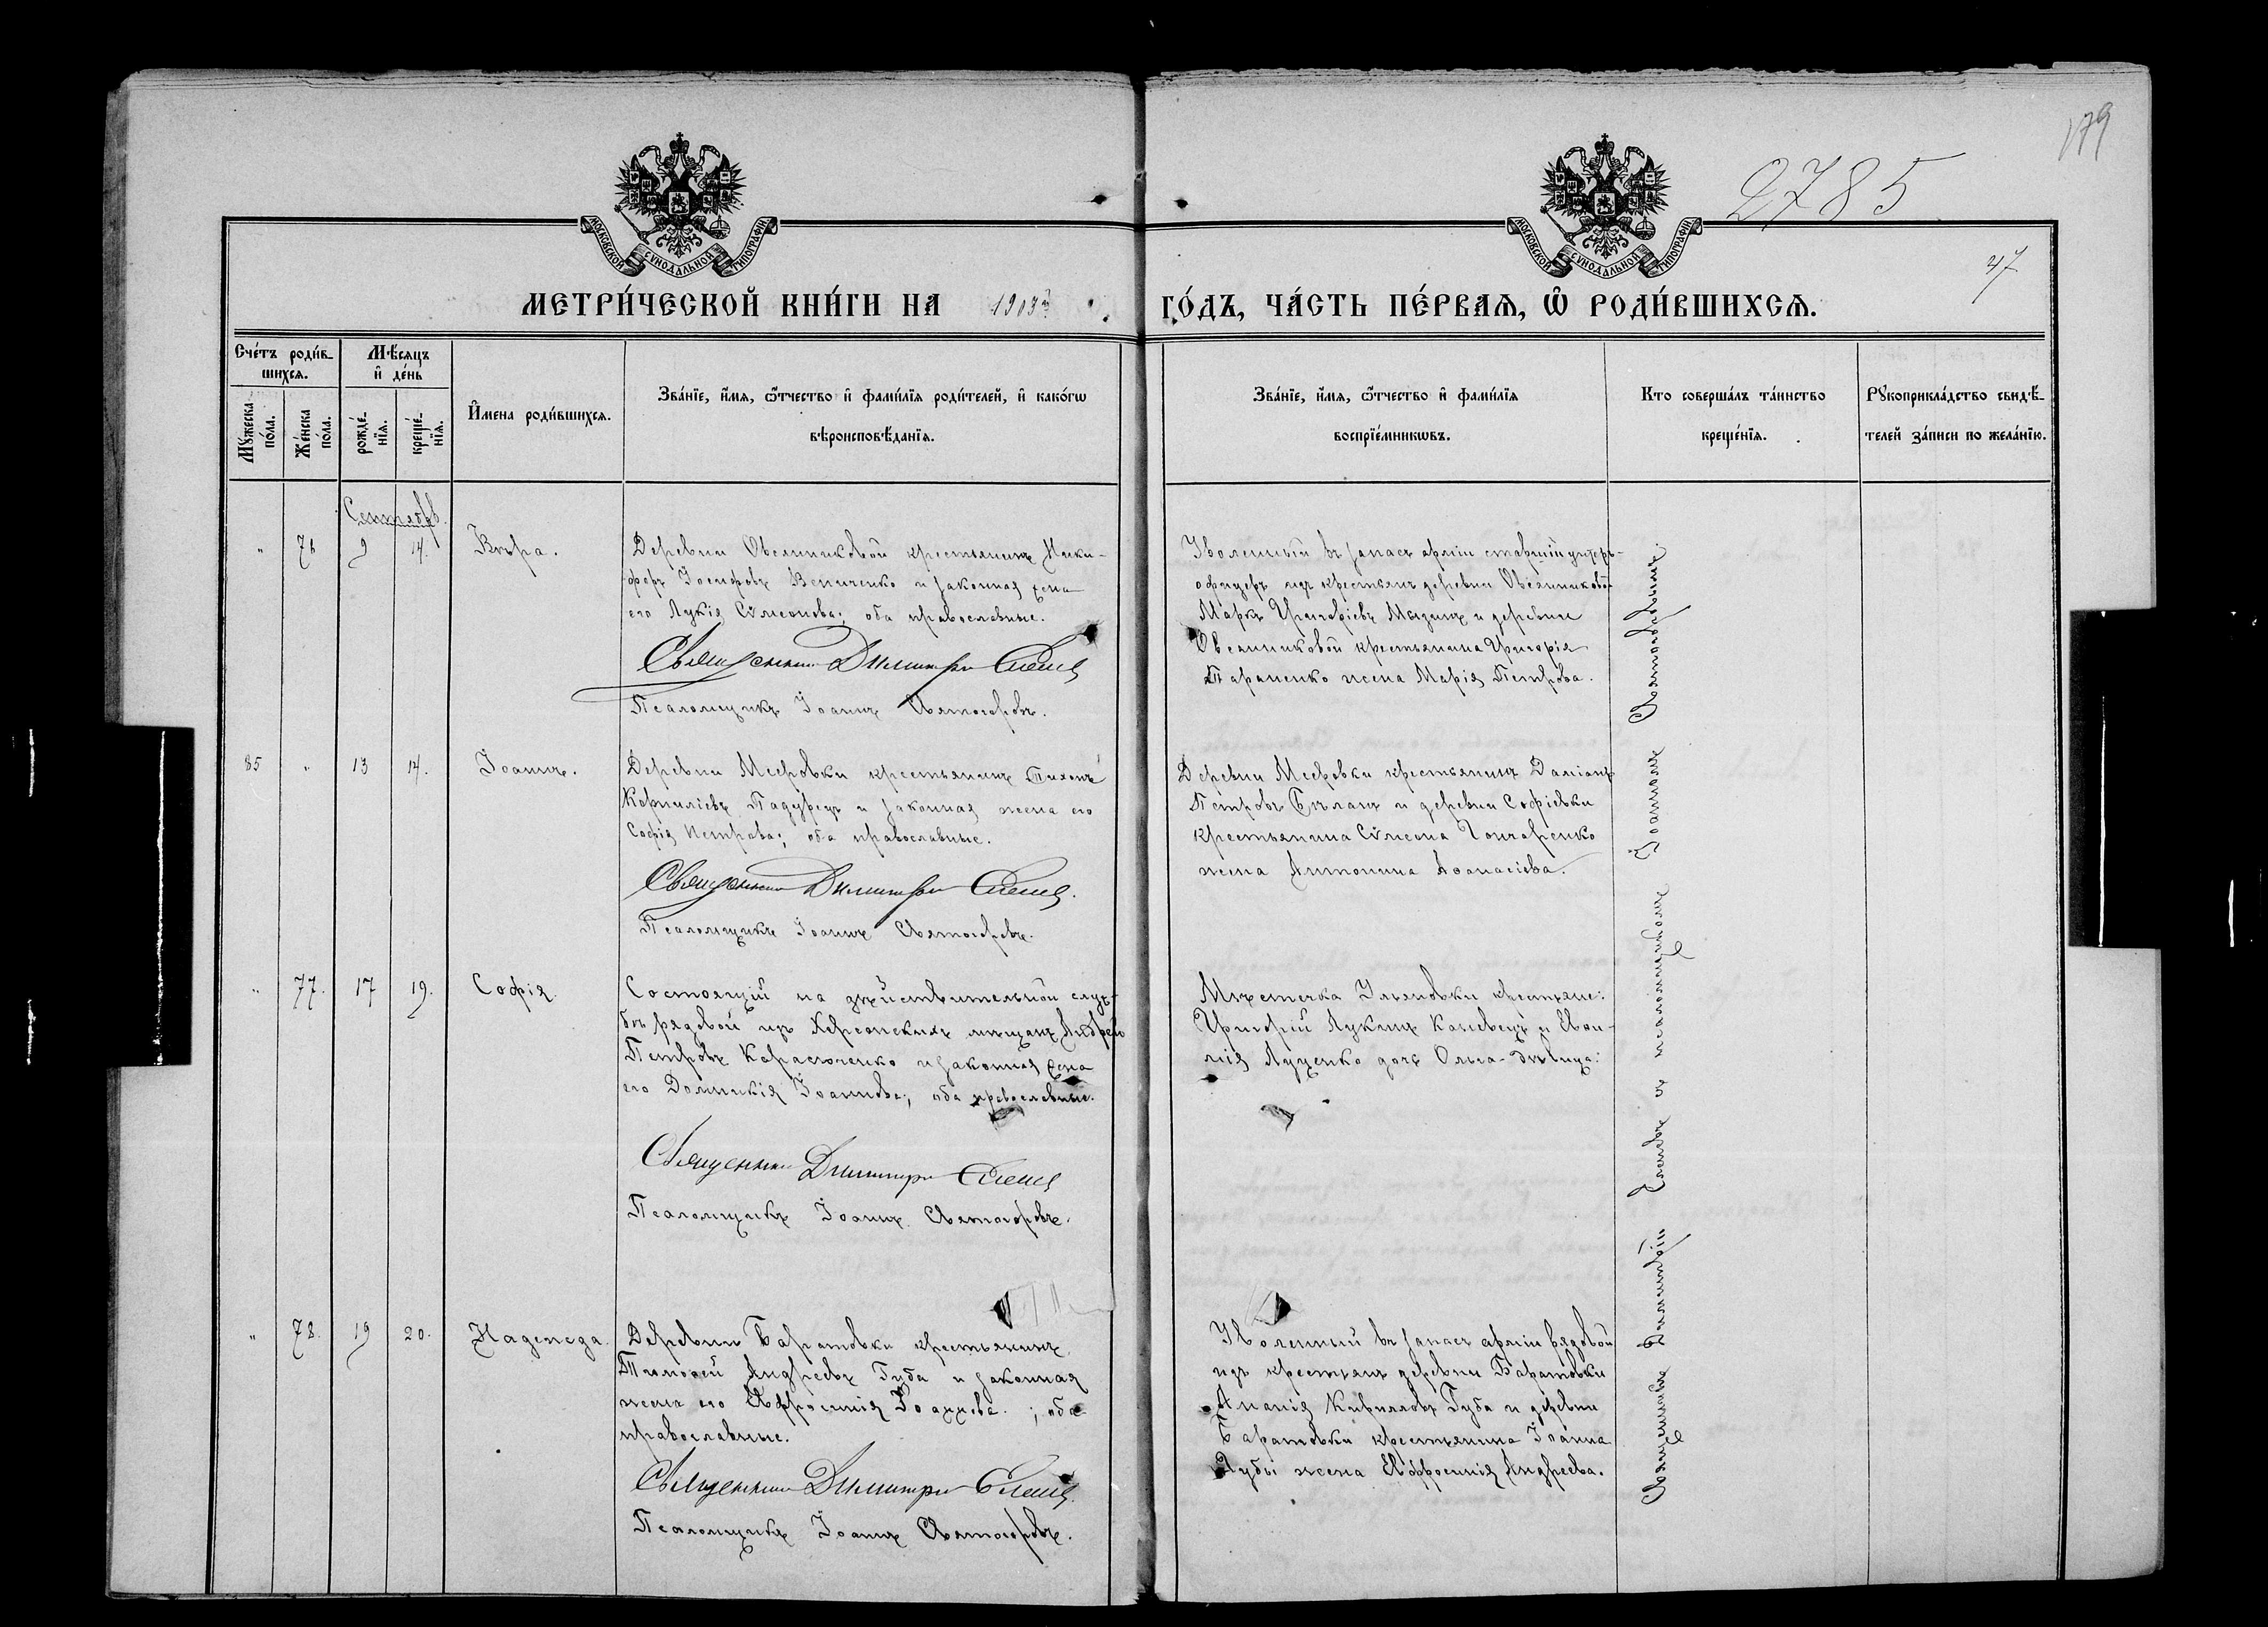 179
2785
47
МОСКОВСКОЙ СУНОДАЛЬНОЙ ТИПОГРАФІИ
МОСКОВСКОЙ СУНОДАЛЬНОЙ ТИПОГРАФІИ
МЕТРИ́ЧЕСКОЙ КНИ́ГИ НА 1903й ГО́ДЪ, ЧА́СТЬ ПЕ́РВАѦ, Ѿ РОДИ́ВШИХСѦ.
Сче́тъ роди́в-
шихсѧ.
Мꙋ́жеска по́ла.
Же́нска по́ла.
Мѣ́сѧцъ
и҆ де́нь
рожде́-
нїѧ.
креще́-
нїѧ.
И҆мена роди́вшихсѧ.
Зва́нїе, и҆́мѧ, ѻ҆́тчество и҆ фами́лїѧ роди́телей, и҆ како́гѡ
вѣроисповѣ́данїѧ.
Зва́нїе, и҆́мѧ, ѻ҆́тчество и҆ фами́лїѧ
воспрїе́мникѡвъ.
Кто соверша́лъ та́инство
креще́нїѧ.
Рꙋкоприкла́дство свидѣ́-
телей за́писи по жела́нїю.
Сентябрь.
" 76 9 14. Вѣра.
Деревни Овсянниковой крестьянинъ Ники-
форъ Іосифовъ и законная жена
его Лукія Сѵмеонова; оба православные.
Священникъ Димитрій
Псаломщикъ Іоаннъ Святогоровъ.
Уволенный въ запасъ арміи старшій унтеръ-
офицеръ изъ крестьянъ деревни Овсянниковой
Маркъ Григоріевъ Мазинъ и деревни
Овсянниковой крестьянина Григорія
Тараненко жена Марія Петрова.
85 " 13 14. Іоаннъ.
Деревни Мееровки крестьянинъ Тихонъ
Корниліевъ Падурецъ и законная жена его
Софія Петрова; оба православные.
Священникъ Димитрій
Псаломщикъ Іоаннъ Святогоровъ.
Деревни Мееровки крестьянинъ Даміанъ
Петровъ Бѣланъ и деревни Софіевки
крестьянина Сѵмеона Гончаренко
жена Антонина Аѳанасіева.
" 77. 17 19. Софія.
Состоящій на дѣйствительной служ-
бѣ рядовой изъ Херсонскихъ мѣщанъ Андрей
Петровъ Карасюченко и законная жена
его Домникія Іоаннова; оба православные.
Священникъ Димитрій
Псаломщикъ Іоаннъ Святогоровъ.
Мѣстечка Ульяновки крестьяне:
Григорій Лукинъ Каневецъ и Евѳи-
мія Луценко дочь Ольга-дѣвица.
" 78. 19 20. Надежда.
Деревни Баратовки крестьянинъ
Тимоѳей Андреевъ Губа и законная
жена его Евфросинія Іоаннова; оба
православные.
Священникъ Димитрій
Псаломщикъ Іоаннъ Святогоровъ.
Уволенный въ запасъ арміи рядовой
изъ крестьянъ деревни Баратовки
Ананія Кирилловъ Губа и деревни
Баратовки крестьянина Іоанна
Губы жена Евфросинія Андреева.
Священникъ Димитрій и псаломщикомъ Іоанномъ Святогоровымъ.